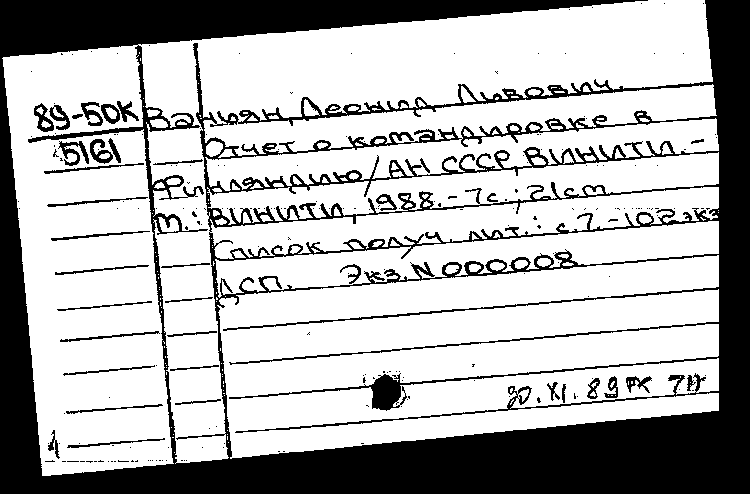 89-50К
5161
Ваньян, Леонид Львович.
Отчет о командировке в
Финляндию / АН СССР, ВИНИТИ. -
m.: ВИНИТИ, 1988. - 7с.; 21см
Список получ. лит.: с.7. - 102экз
ДСП. Экз. N 000008
30.XI.89